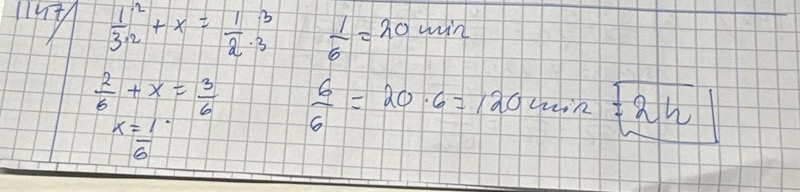 1147/ 1/3 ·2 ·2 + x = 1/2 ·3 ·3
1/6 = 20 min
2/6 + x = 3/6
x = 1/6
6/6 = 20 · 6 = 120 min = 2h